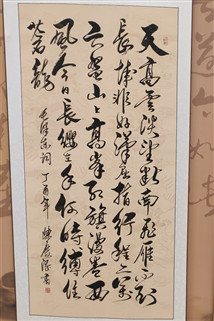 天高雲淡望斷南飛雁不到
長城非好漢屈指行程二萬
六盤山上高峰紅旗漫卷西
風今日長纓在手何時縛住
蒼龍
毛澤東詞 丁酉年 書